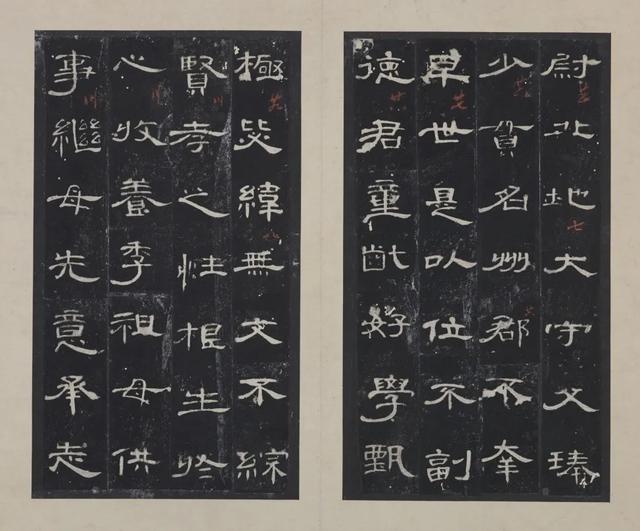 尉北地大守父琫
少貫名州郡不幸
早世是以位不副
德君童齔好學甄
極毖緯無文不綜
賢孝之性根生於
心收養季祖母供
事繼母先意承志